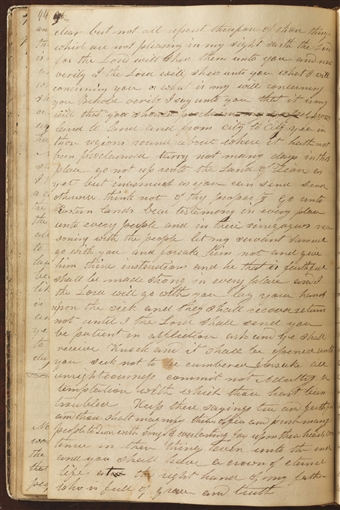 44
clear but not all repent therefore of those things
which are not pleasing in my sight saith the Lord
for the Lord will show them unto you and now
verily I the Lord will show unto you what I will
concerning you or what is my will concerning
you Behold verily I say unto you that it is my
will that you should
land to land and from city to city yea in
those regions round about where it hath not
been proclaimed tarry not many days in this
place go not up unto the Land of Zion as
yet but inasmuch as you can send send
otherwise think not of thy property go unto
the Eastern Lands bear testimony in every place
unto every people and in their synagogues rea
soning with the people let my servant Samuel
go with you and forsake him not and give
him thine instructions and he that is faithful
shall be made strong in every place and I
the Lord will go with you lay your hands
upon the sick and they shall recover return
not until I the Lord shall send you
be patient in affliction ask and ye shall
receive knock and it shall be opened unto
you seek not to be cumbered forsake all
unrighteousness commit not Adultery a
temptation with which thou hast been
troubled Keep these sayings for they are true & faithful
and thou shalt magnify thine office and push many
people to Zion with songs of everlasting Joy upon their heads con
tinue in these things even unto the end
and you shall have a crown of eternal
life at the right hand of my Father
who is full of grace and truth